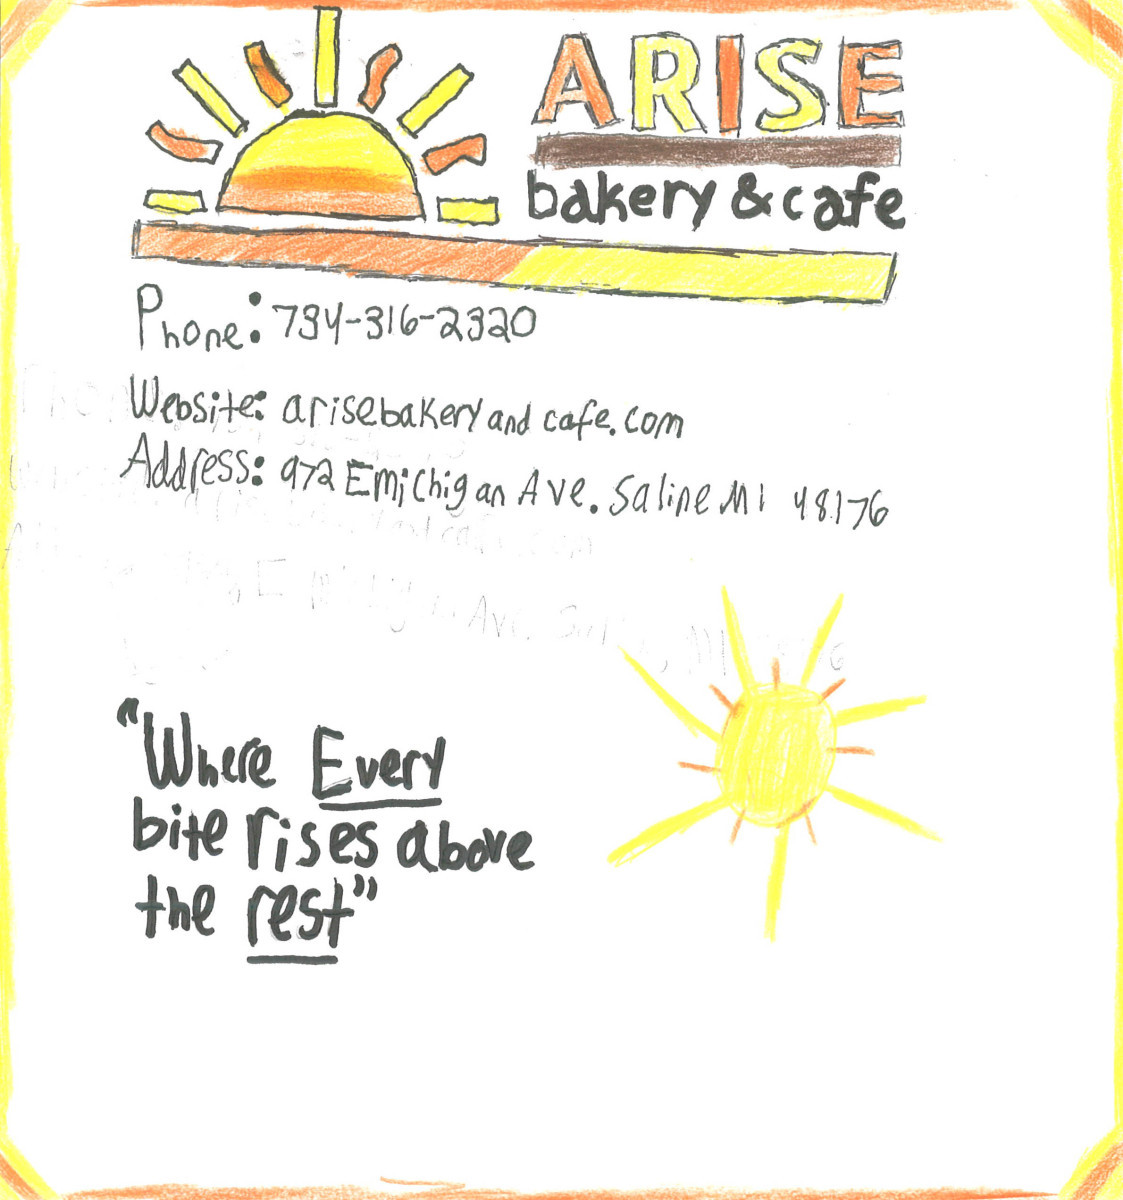 ARISE
bakery & cafe
Phone: 734-316-2320
Website: arisebakeryand cafe.com
Address: 972 E michigan Ave. Saline MI 48176
"Where Every
bite rises above
the rest"